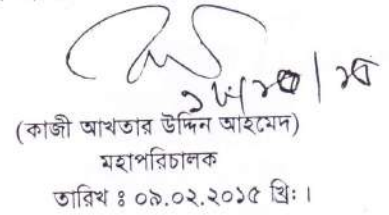 (কাজী আখতার উদ্দিন আহমেদ)
মহাপরিচালক
তারিখ ঃ ০৯.০২.২০১৫ খ্রিঃ।